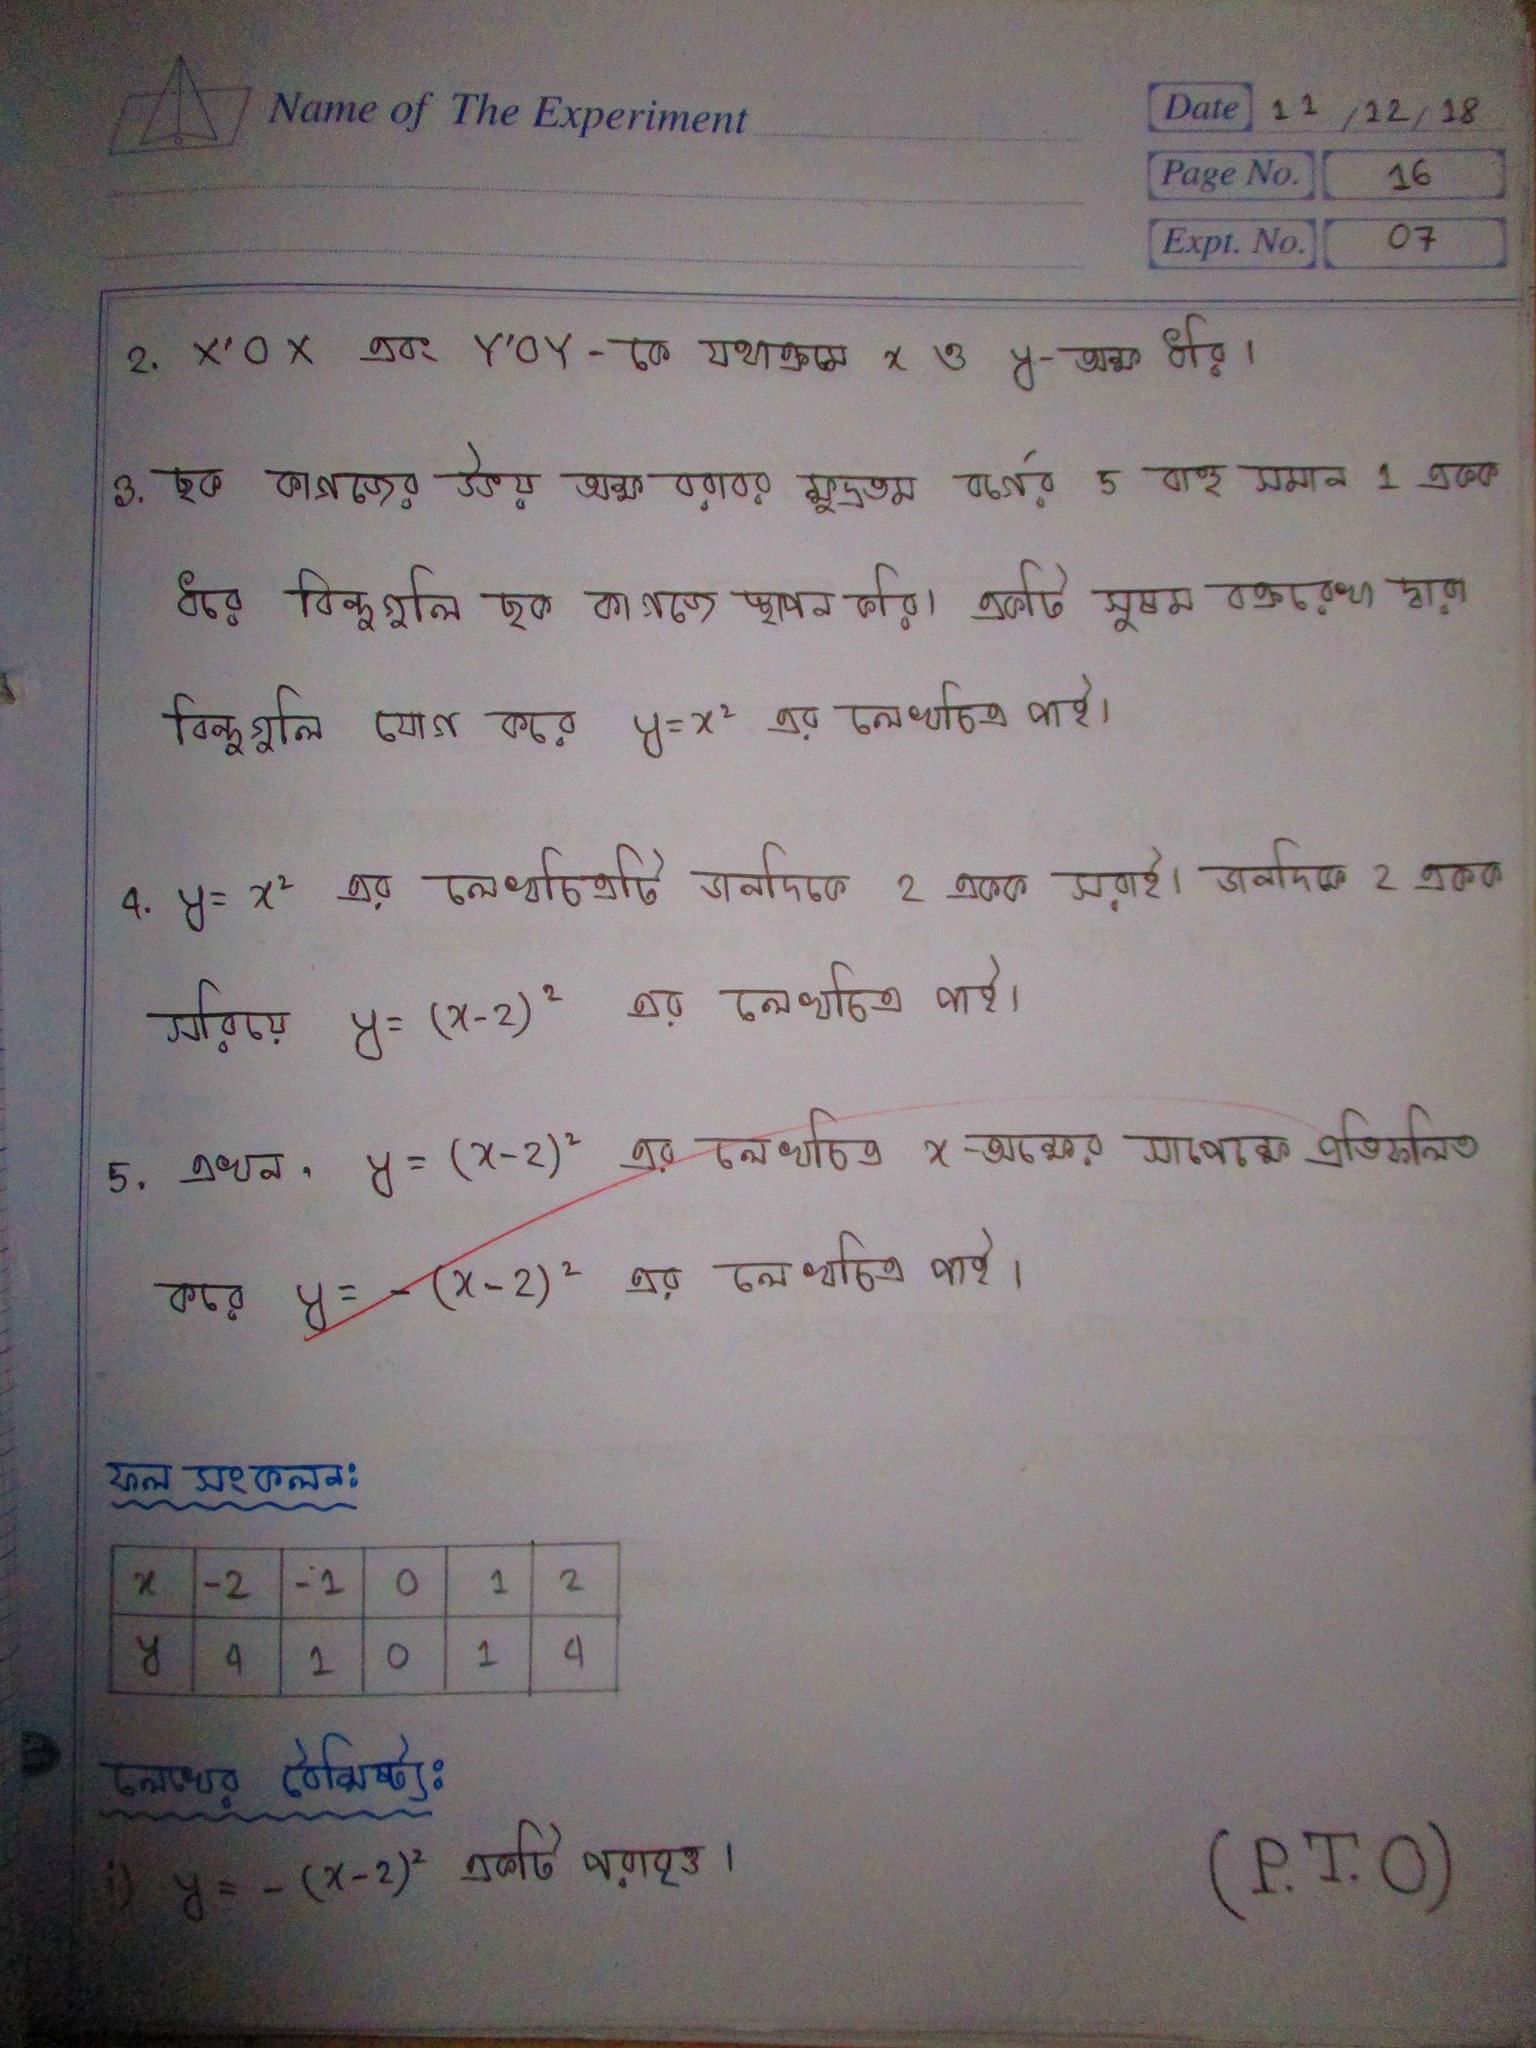 Name of The Experiment
Date 11/12/18
Page No. 16
Expt. No. 07
2. X'OX এবং Y'OY-কে যথাক্রমে x ও y-অক্ষ ধরি।
3. ছক কাগজের উভয় অক্ষ বরাবর ক্ষুদ্রতম বর্গের 5 বাহু সমান 1 একক
ধরে বিন্দুগুলি ছক কাগজে স্থাপন করি। একটি সুষম বক্ররেখা দ্বারা
বিন্দুগুলি যোগ করে y=x² এর লেখচিত্র পাই।
4. y=x² এর লেখচিত্রটি ডানদিকে 2 একক সরাই। ডানদিকে 2 একক
সরিয়ে y=(x-2)² এর লেখচিত্র পাই।
5. এখন, y=(x-2)² এর লেখচিত্র x-অক্ষের সাপেক্ষে প্রতিফলিত
করে y=-(x-2)² এর লেখচিত্র পাই।
ফল সংকলন:
x -2 -1 0 1 2
y 4 1 0 1 4
লেখের বৈশিষ্ট্য:
i) y=-(x-2)² একটি পরাবৃত্ত।
(P.T.O)